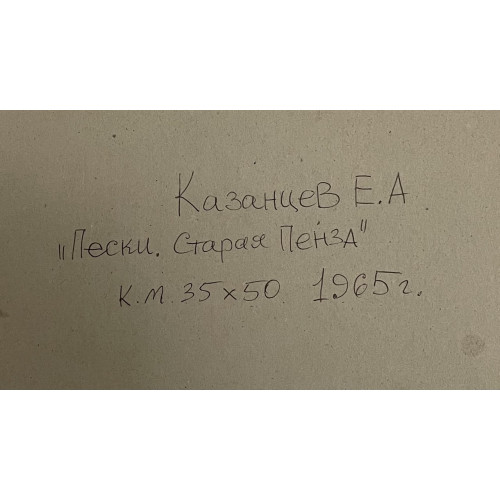 Казанцев Е.А
"Пески. Старая Пенза"
к.м. 35×50 1965г.